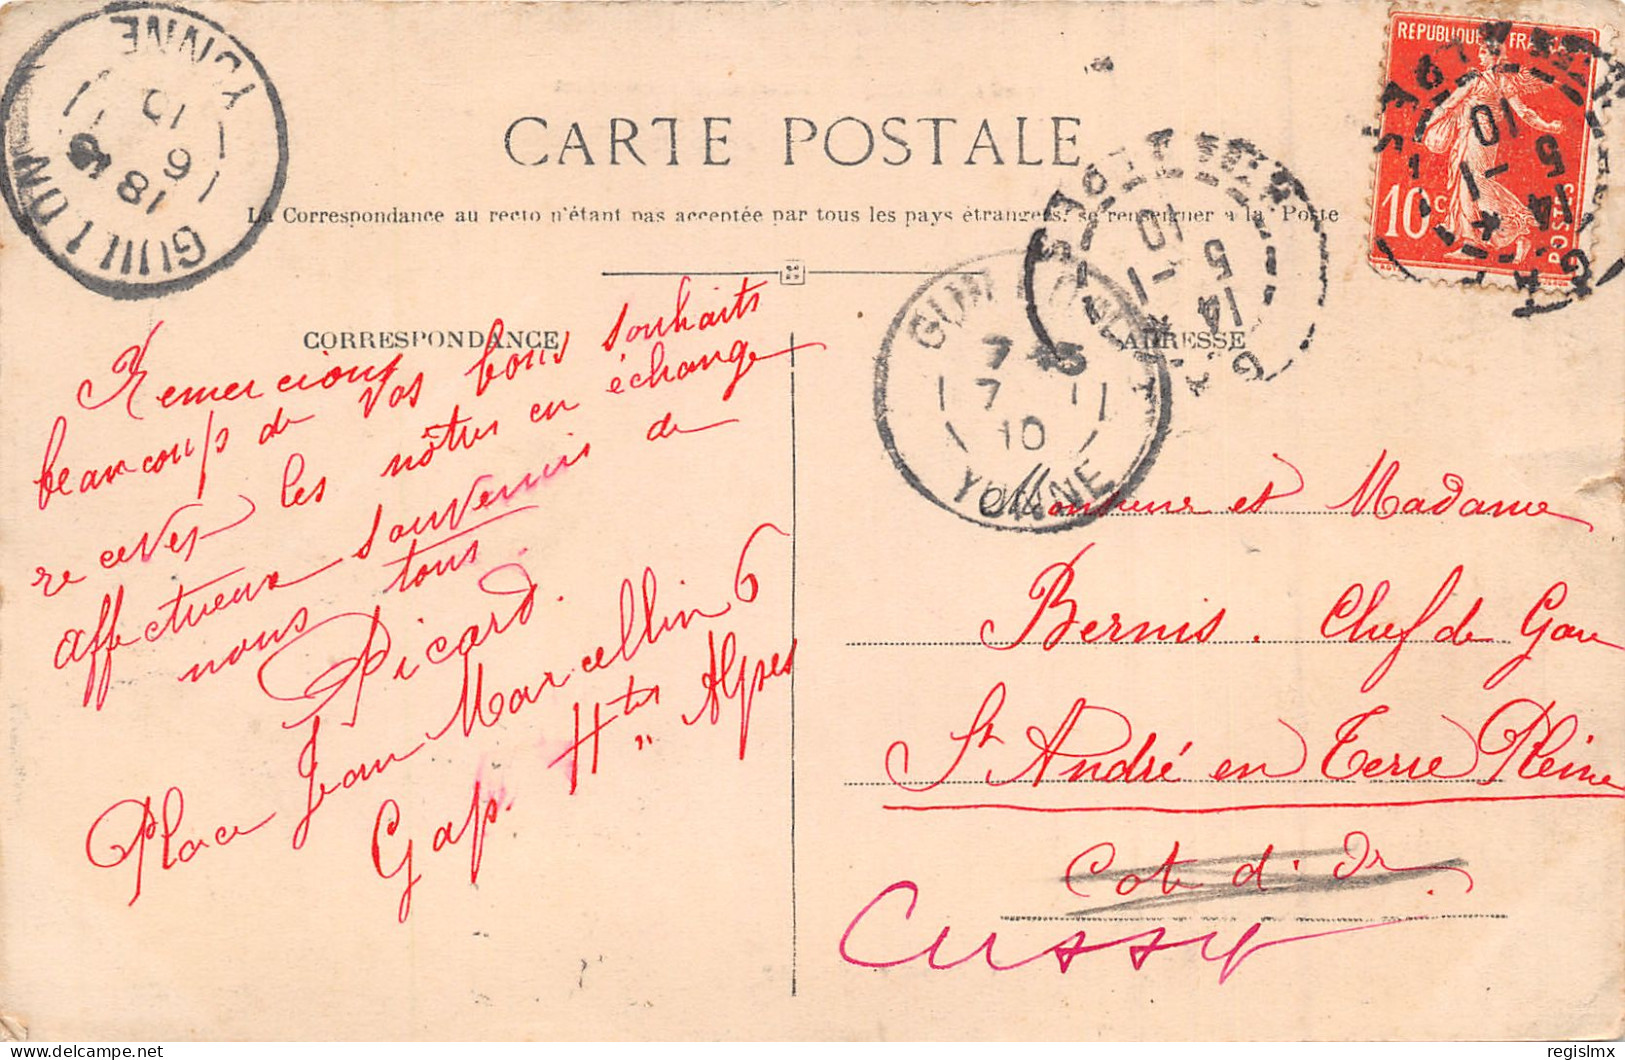 CARTE POSTALE
La Correspondance au recto n'étant pas acceptée par tous les pays étrangers, se renseigner à la Poste
CORRESPONDANCE
Remercions
beaucoup de vos bons souhaits
recevez les nôtres en échange
affectueux souvenirs de
nous tous.
Picard.
Place Jean Marcellin 6
Gap. Htes Alpes
ADRESSE
Monsieur et Madame
Bernis. Chef de Gare
St André en Terre Pleine
Cote d'Or
Cussy
REPUBLIQUE FRANCAISE
10c
POSTES
GUILLON
18
6
10
YONNE
GUILLON
7
7 1
10
YONNE
14
5 -1
10
GAP
14
5 -1
10
GAP
delcampe.net
regislmx